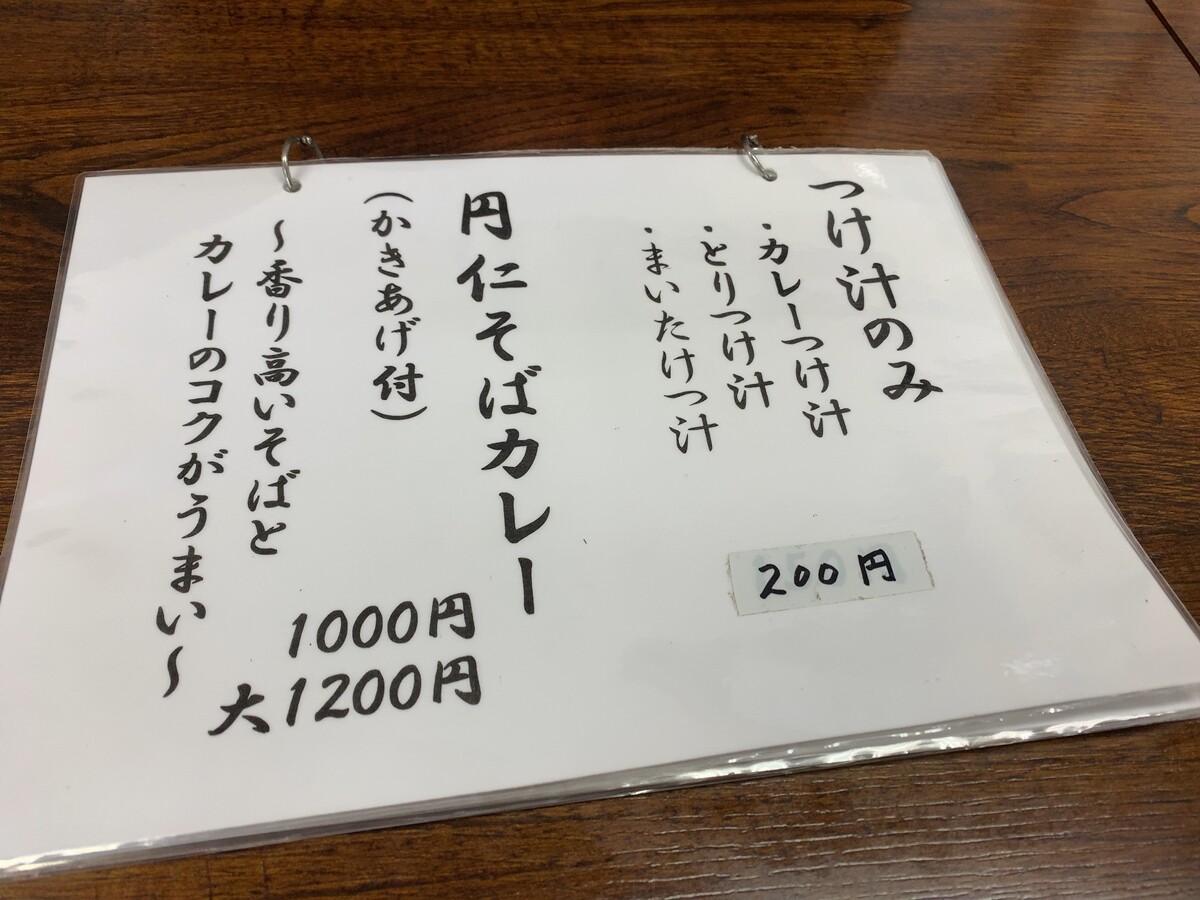 つけ汁のみ
・カレーつけ汁
・とりつけ汁
・まいたけつ汁
200円
円仁そばカレー
(かきあげ付)
～香り高いそばと
カレーのコクがうまい～
1000円
大1200円